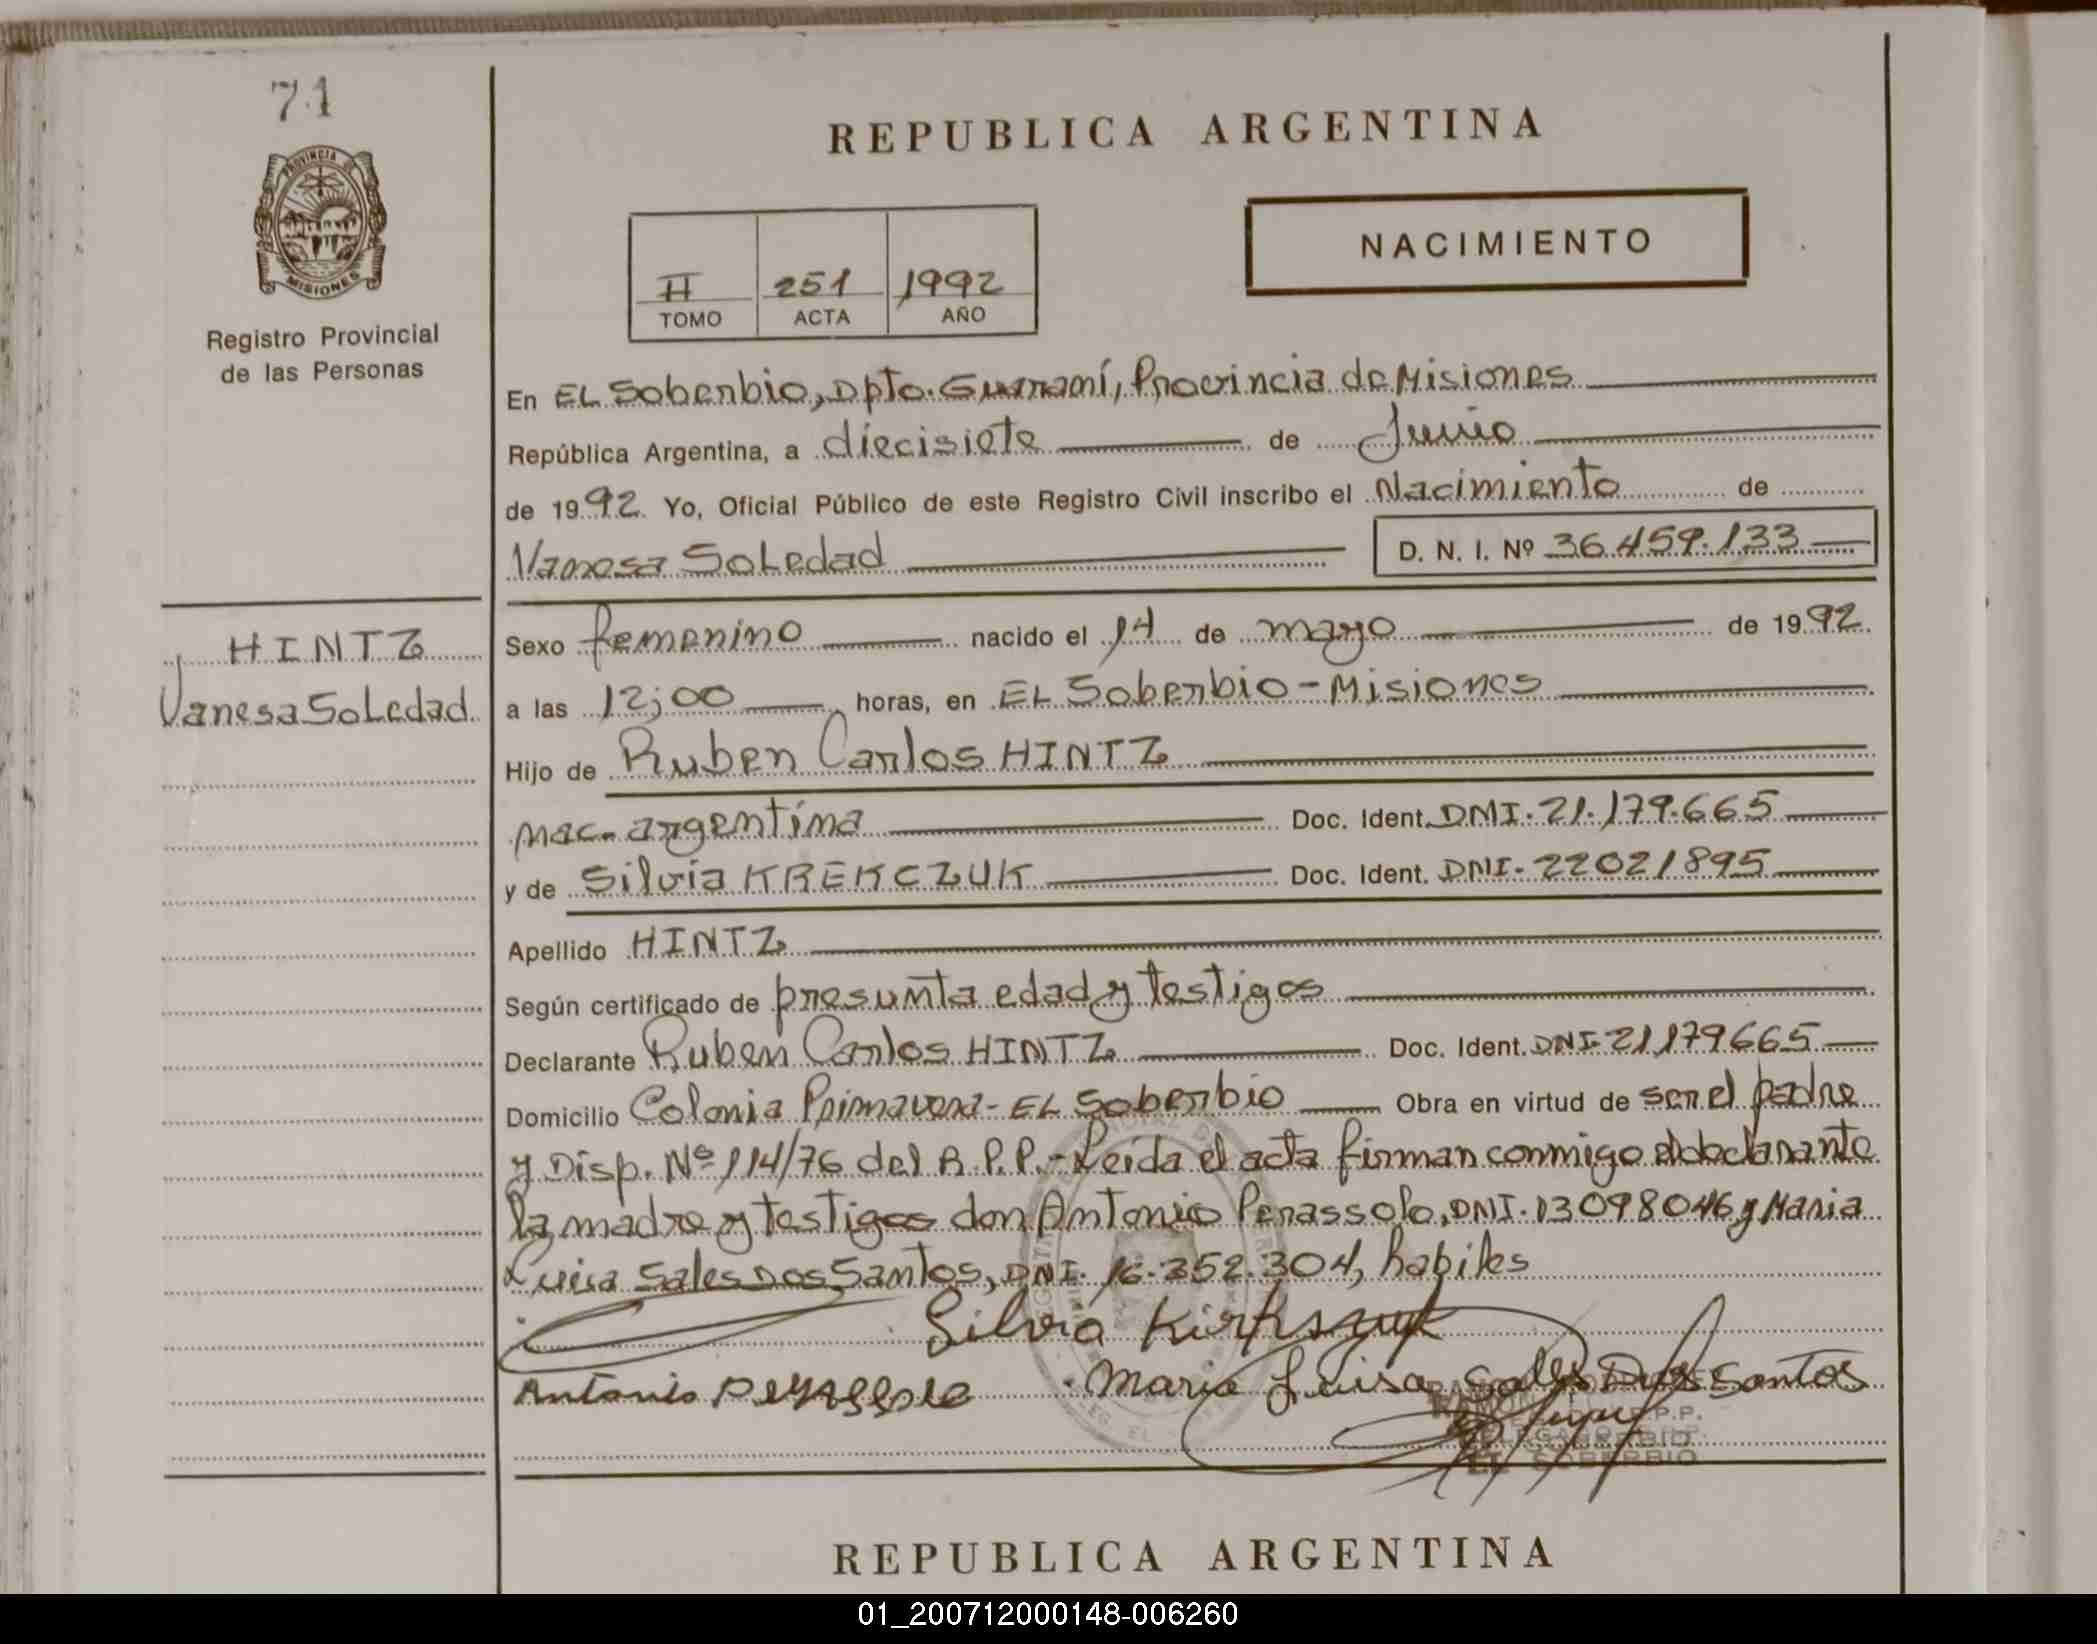 71
PROVINCIA DE
MISIONES
Registro Provincial
de las Personas
REPUBLICA ARGENTINA
NACIMIENTO
II 251 1992
TOMO ACTA AÑO
En EL Soberbio, Dpto. Guaraní, Provincia de Misiones
República Argentina, a diecisiete de Junio
de 1992 Yo, Oficial Público de este Registro Civil inscribo el Nacimiento de
Vanesa Soledad D. N. I. Nº 36.459.133
HINTZ
Vanesa Soledad
Sexo femenino nacido el 14 de mayo de 1992
a las 12;00 horas, en EL Soberbio - Misiones
Hijo de Ruben Carlos HINTZ
nac. argentina Doc. Ident. DNI. 21.179.665
y de Silvia KREKCZUK Doc. Ident. DNI- 22021895
Apellido HINTZ
Según certificado de presunta edad y testigos
Declarante Ruben Carlos HINTZ Doc. Ident. DNI 21179665
Domicilio Colonia Primavera - EL Soberbio Obra en virtud de ser el padre
y Disp. Nº 114/76 del R.P.P.- Leída el acta firman conmigo el declarante
la madre y testigos don Antonio Perassolo, DNI. 13098046 y Maria
Luisa Sales Dos Santos, DNI. 16.352.304, habiles
Silvia
Antonio Maria Luisa Sales Dos Santos
EL SOBERBIO
REPUBLICA ARGENTINA
01_200712000148-006260